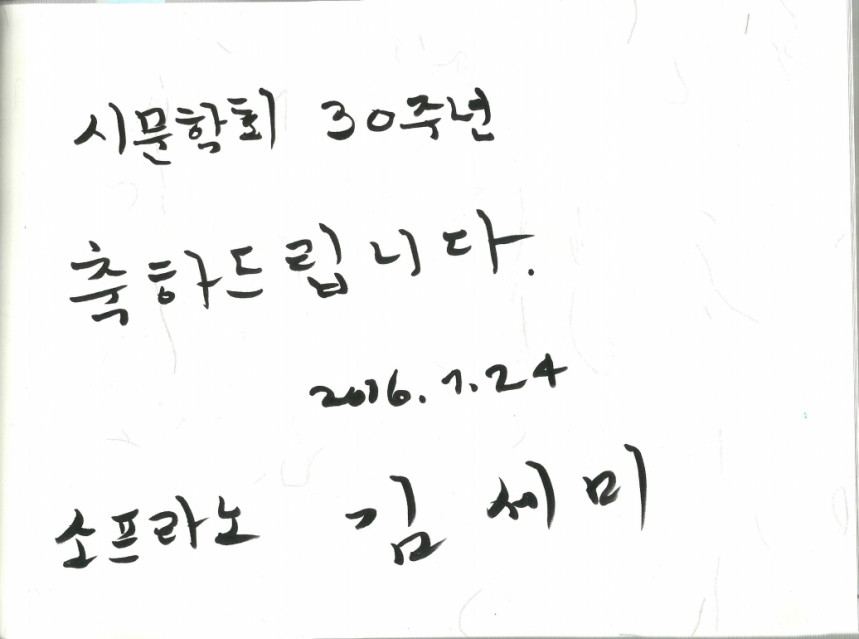 시문학회 30주년
축하드립니다.
2016. 7. 24
소프라노 김세미